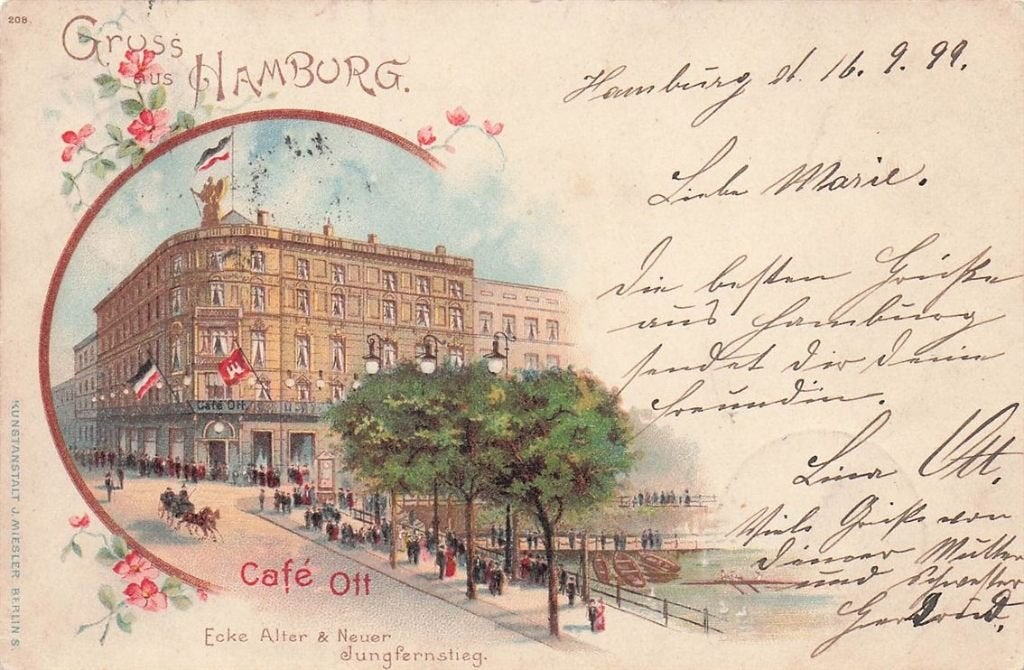 208
Gruss
aus
HAMBURG.
Hamburg d. 16. 9. 99.
Liebe Marie.
Die besten Grüße
aus Hamburg
sendet dir deine
Freundin.
Lina Ott.
Viele Grüße von
deiner Mutter
und Schwester
Café Ott
Café Ott
Ecke Alter & Neuer
Jungfernstieg.
KUNSTANSTALT J. MIESLER BERLIN S.